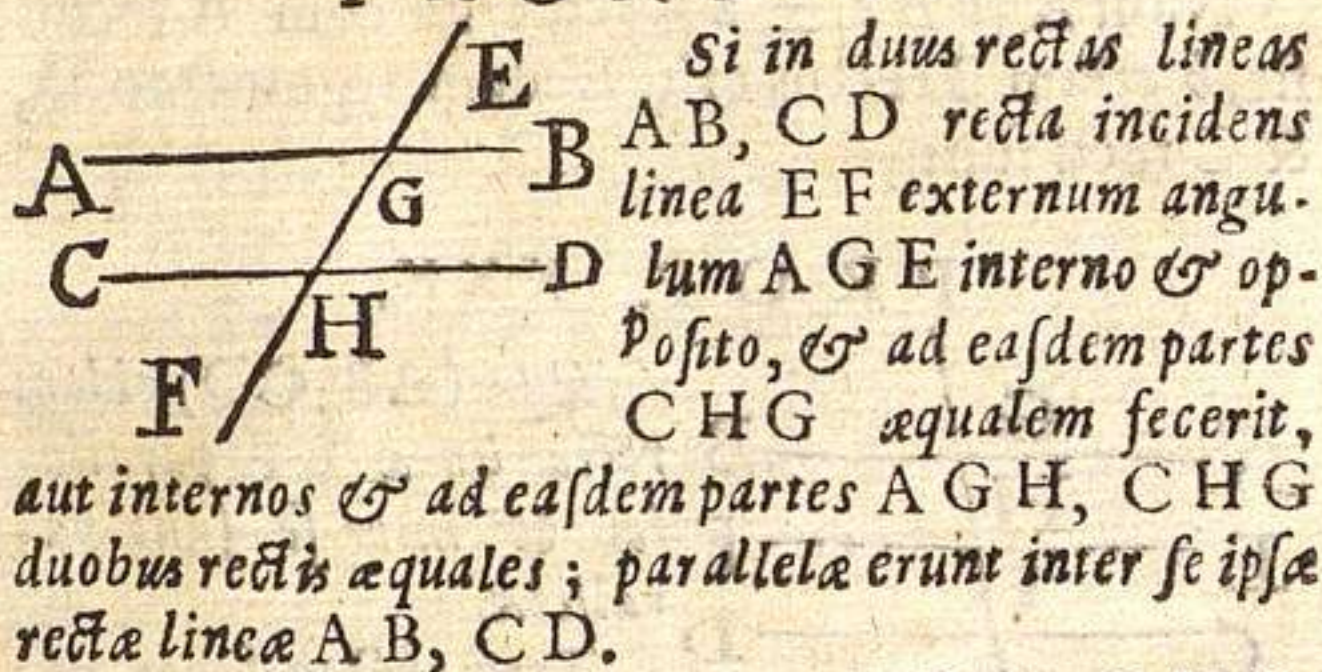 E
Si in duus rectas lineas
A
B
A B, C D recta incidens
G
linea E F externum angu-
C
D
lum A G E interno & op-
H
posito, & ad eaſdem partes
F
C H G æqualem fecerit,
aut internos & ad eaſdem partes A G H, C H G
duobus rectis æquales ; parallelæ erunt inter ſe ipſæ
rectæ lineæ A B, C D.